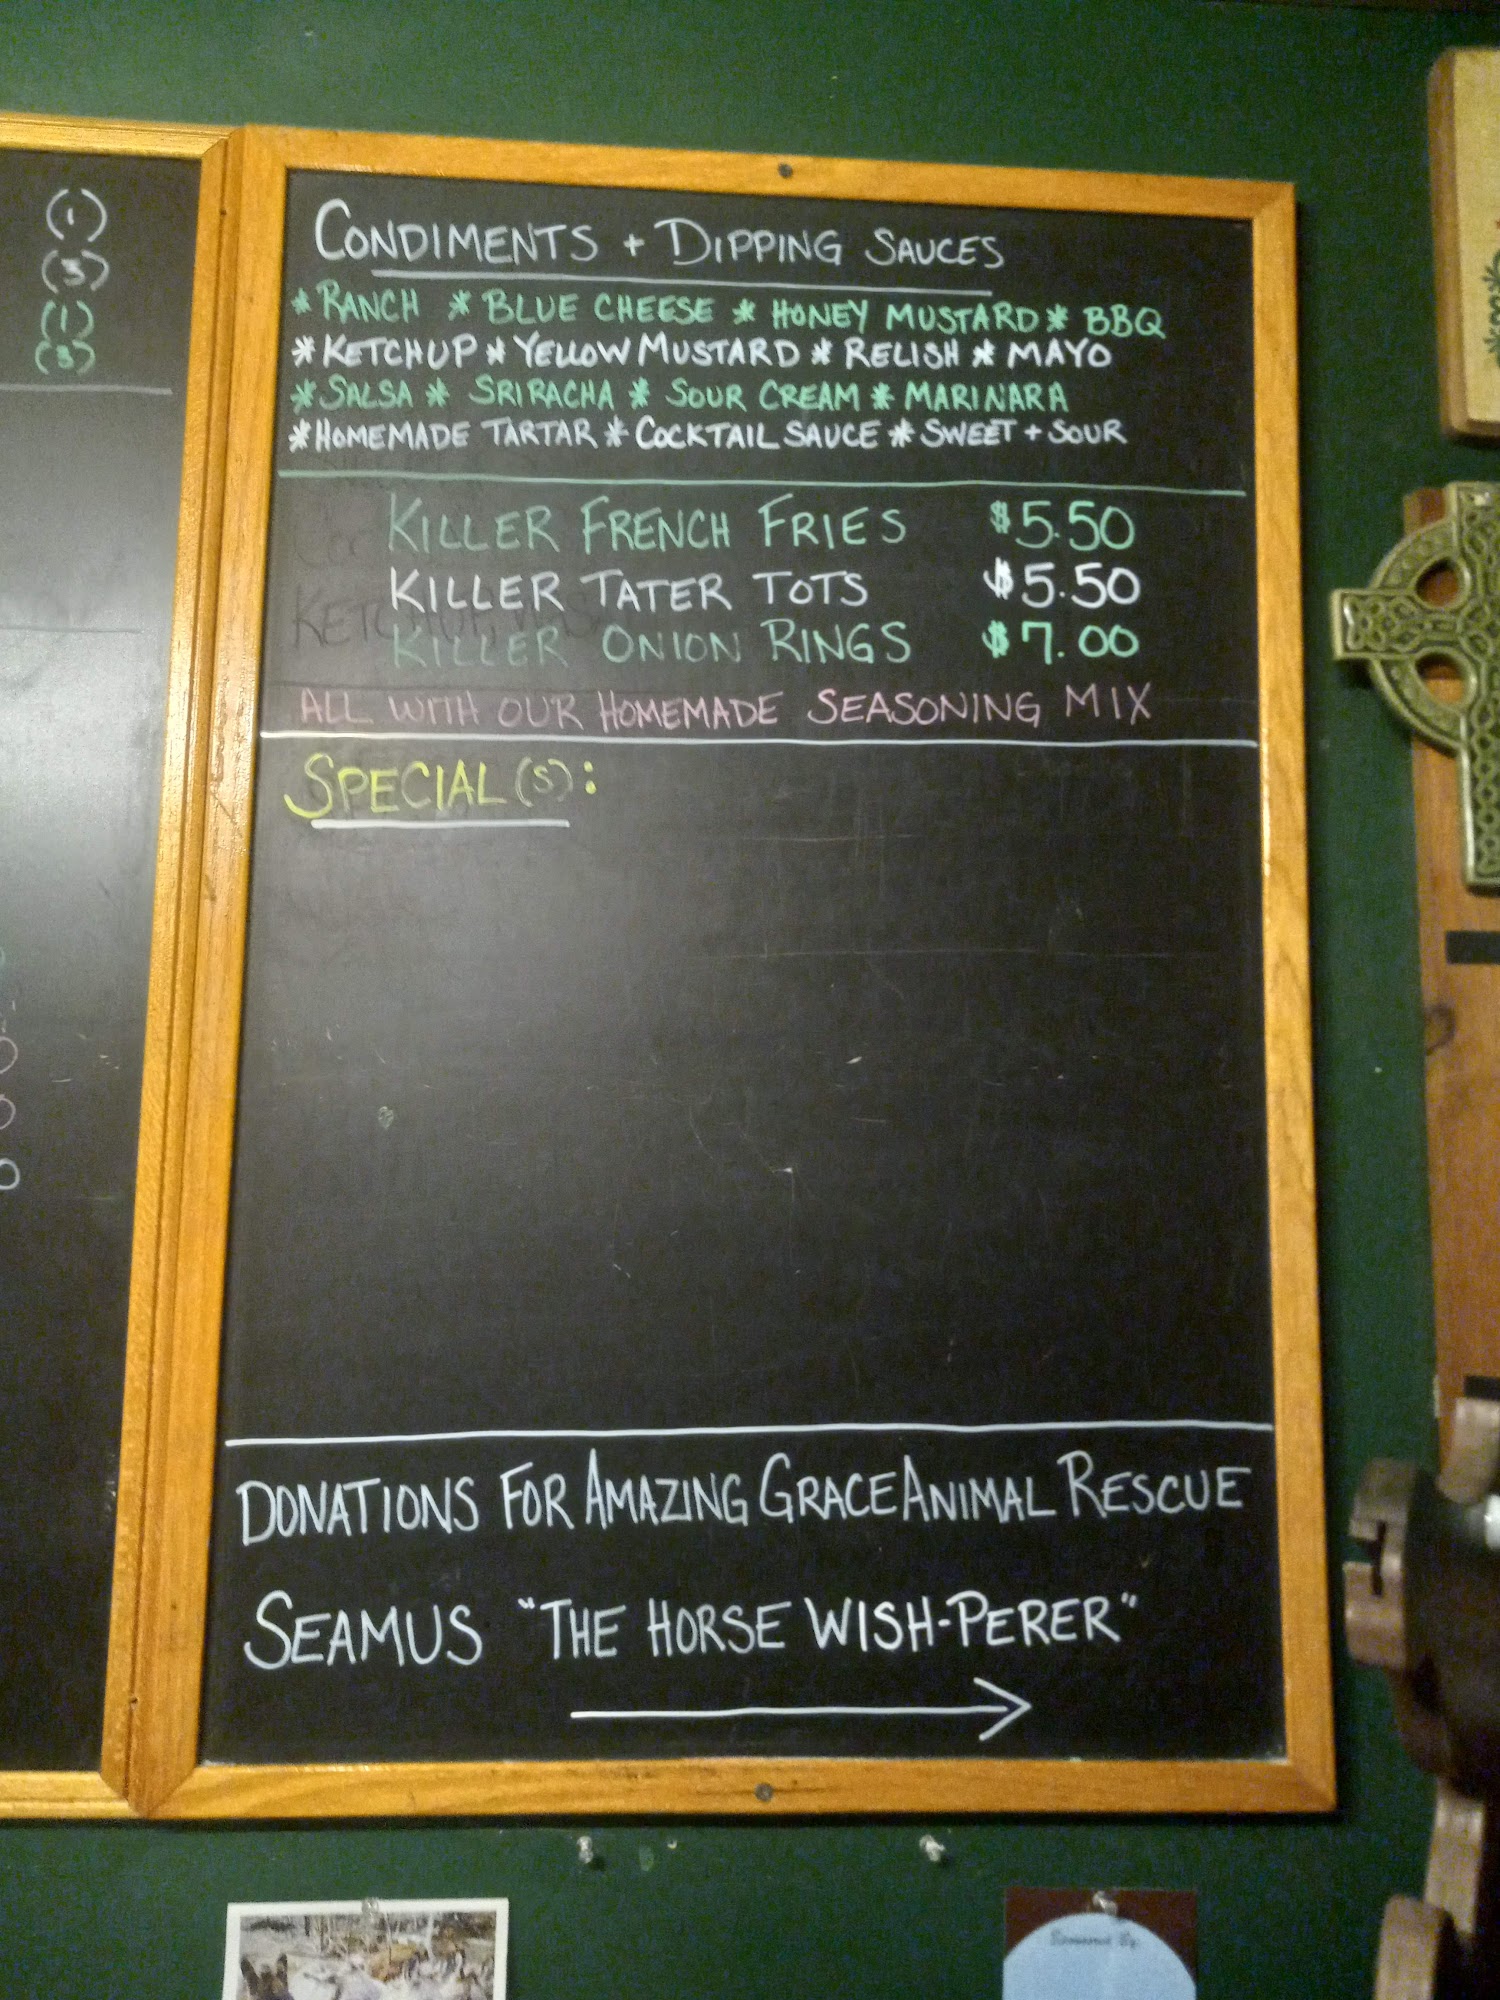 (1)
(3)
(1)
(3)
CONDIMENTS + DIPPING SAUCES
* RANCH * BLUE CHEESE * HONEY MUSTARD * BBQ
* KETCHUP * YELLOW MUSTARD * RELISH * MAYO
* SALSA * SRIRACHA * SOUR CREAM * MARINARA
* HOMEMADE TARTAR * COCKTAIL SAUCE * SWEET + SOUR
KILLER FRENCH FRIES $5.50
KILLER TATER TOTS $5.50
KILLER ONION RINGS $7.00
ALL WITH OUR HOMEMADE SEASONING MIX
SPECIAL(S):
DONATIONS FOR AMAZING GRACE ANIMAL RESCUE
SEAMUS "THE HORSE WISH-PERER"